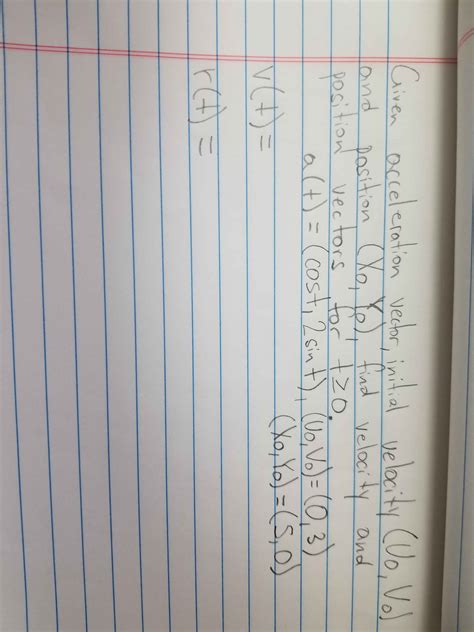 Given acceleration vector, initial velocity (U0, V0)
and position (X0, Y0), find velocity and
position vectors for t≥0.
a(t) = (cost, 2sint), (U0,V0)=(0,3)
(X0,Y0)=(5,0)
V(t)=
r(t)=